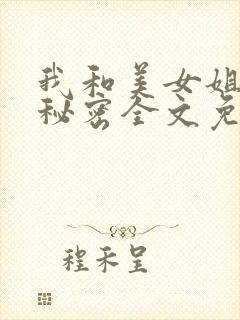 我和美女姐
秘密全文免
程禾呈